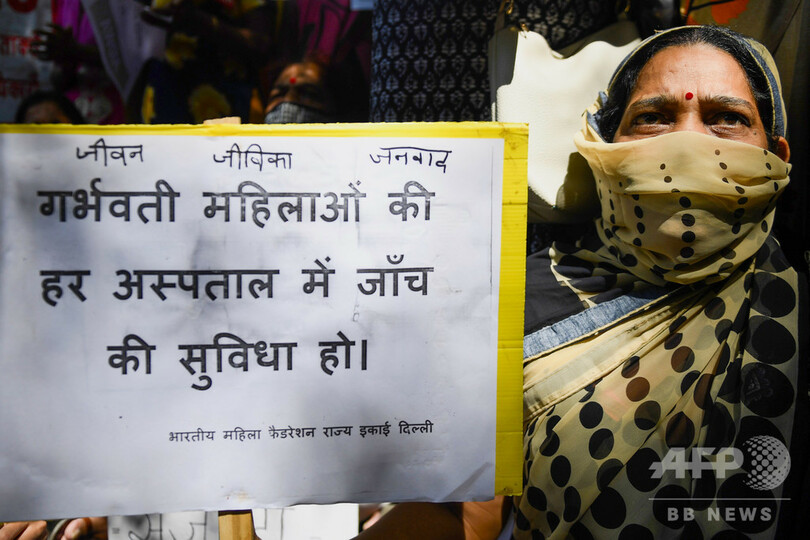 जीवन जीविका जनवाद
गर्भवती महिलाओं की
हर अस्पताल में जाँच
की सुविधा हो।
भारतीय महिला फ़ैडरेशन राज्य इकाई दिल्ली
AFP
BB NEWS